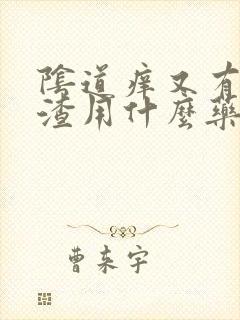 陰道痒又有
渣用什麼藥
曹东宇